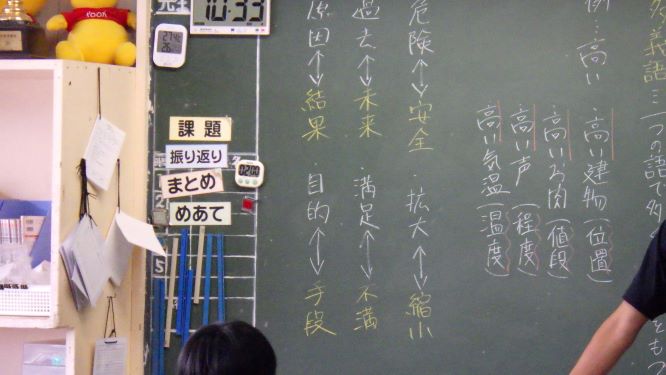 多義語…一つの語で多
例…高い
・高い建物(位置)
・高いお肉(値段)
高い声(程度)
高い気温(温度)
危険↔安全
拡大↔縮小
過去↔未来
・満足↔不満
原因↔結果
・目的↔手段
10:33
課題
振り返り
まとめ
めあて
Pooh